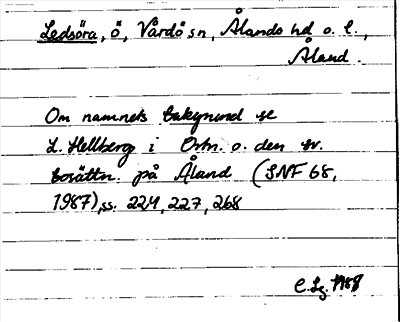 Ledsöra, ö, Vårdö sn, Ålands hd o. l.,
Åland.
Om namnets bakgrund se
L. Hellberg i Ortn. o. den sv.
bosättn. på Åland (SNF 68,
1987), ss. 224, 227, 268
C. Lg. 1988